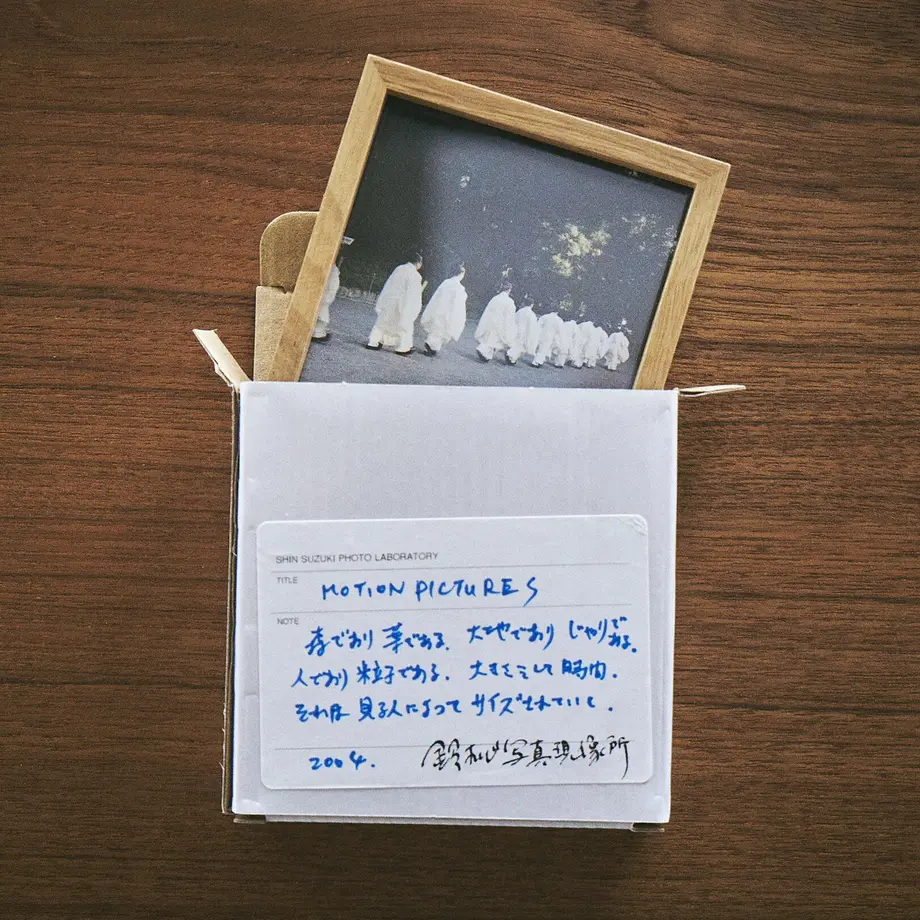 SHIN SUZUKI PHOTO LABORATORY
TITLE
MOTION PICTURES
NOTE
森であり 葉である。大地であり じゃりである。
人であり 粒子である。大きさそして時間。
それは 見る人によって サイズされていく。
2004.
鈴木心写真現像所